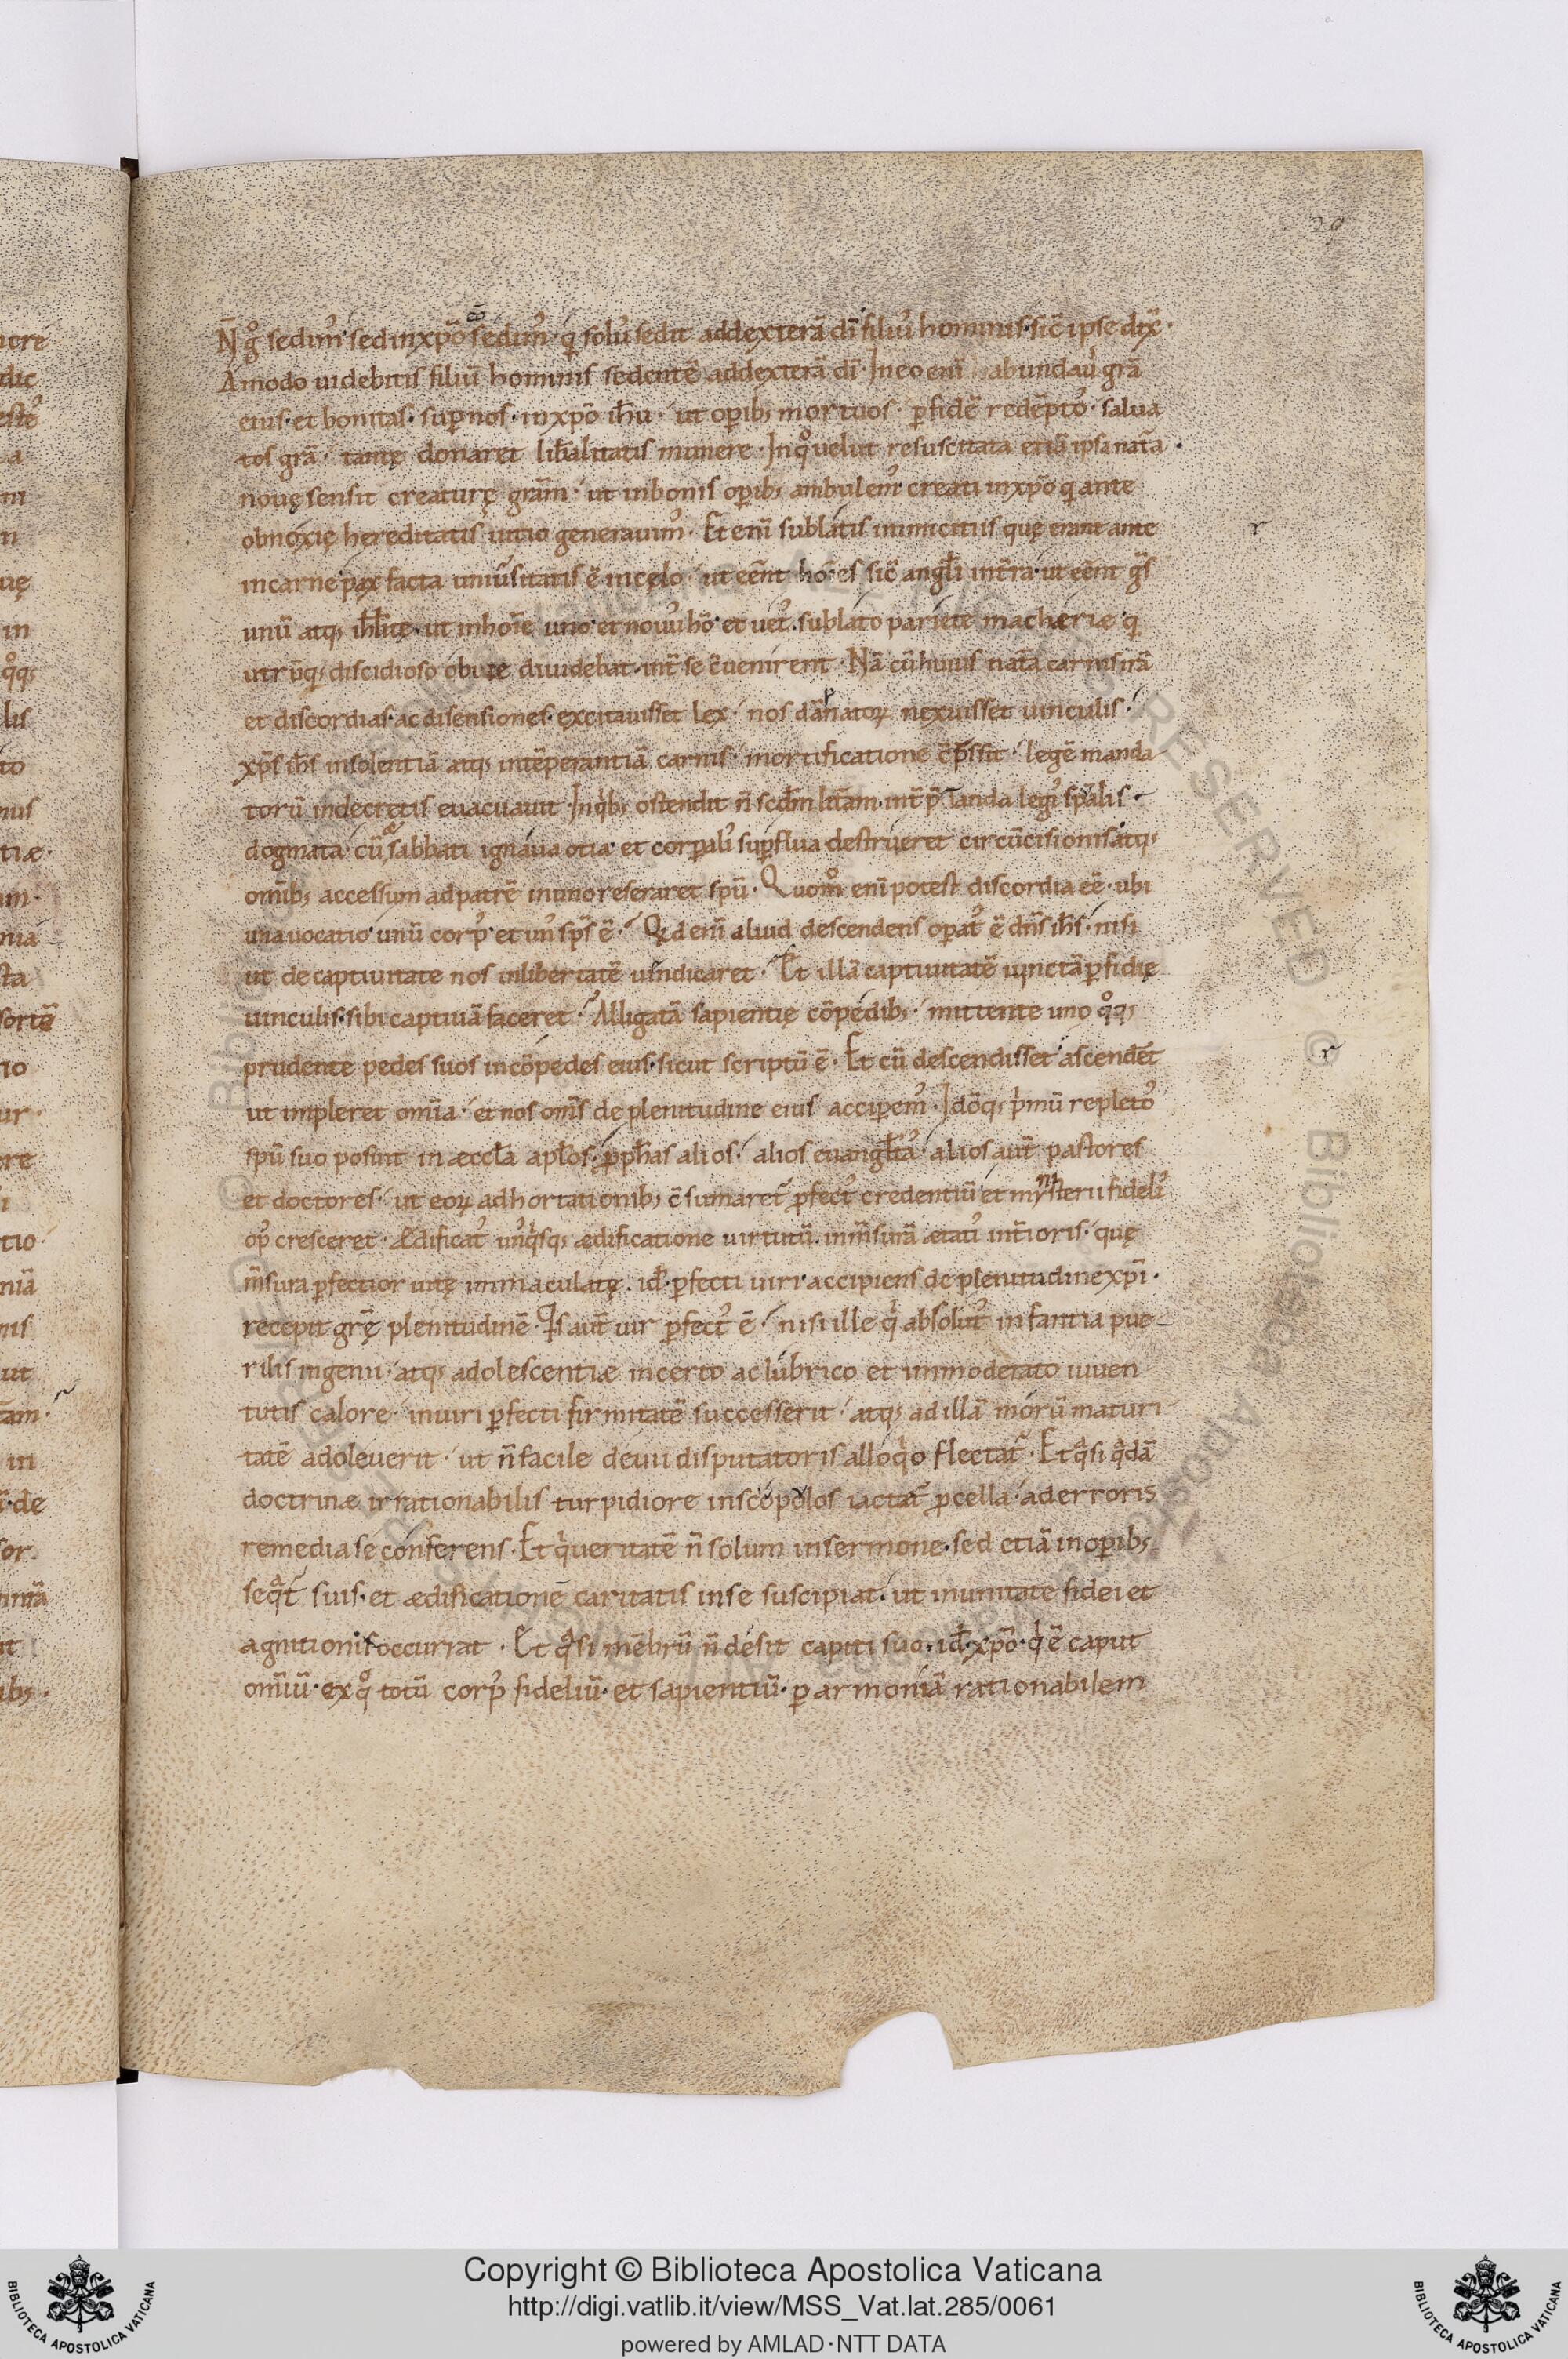 29
N̄ g̊ sedim᾽ sed in xp̄o c̄o sedim᾽ q solu᾽ sedit ad dexterā dī filiu᾽ hominis sic̄ ipse dix̄.
Amodo uidebitis filiū hominis sedentē ad dexterā dī. In eo enī abundau᾽ grā
eius et bonitas. sup nos. in xp̄o ih̄u. ut opib; mortuos. p fidē redēpto᾽. salua
tos grā. tantę donaret lib̄alitatis munere. In q̊ uelut resuscitata etiā ipsa nat̄a.
nouę sensit creaturę gram̄. ut in bonis opib; ambulem᾽ creati in xp̄o q ante
obnoxię hereditatis uitio generauim᾽. Et enī sublatis inimicitiis quę erant ante
in carne pax facta uniu᾽sitatis ē in cęlo. ut eēnt hōes sic̄ angl̄i in t̄ra. ut eēnt
unū atq; ut in hoīe uno et nouu᾽ hō et uet᾽. sublato pariete macheriæ q
utrūq; discidioso obice diuidebat. int̄ se c̄uenirent. Nā cū huius nat̄a carnis irā
et discordias. ac disensiones. excitauisset lex. nos dānatoꝝ nexuisset uinculis.
xp̄s ih̄s insolentiā atq; intēperantiā carnis. mortificatione c̄pssit. legē manda-
torū in decretis euacuauit. In qͥb; ostendit n̄ scd̄m litt̄am. int̄ptanda legi᾽ sp̄alis.
dogmata. cū sabbati ignaua otia et corpali᾽ supflua destrueret circūcisionis atq;
omīb; accessum ad patrē in uno reseraret spū. Quom̊ enī potest discordia eē. ubi
una uocatio unū corp᾽ et un᾽ sp̄s ē. Qd enī aliud descendens opat᾽ ē dn̄s ih̄s. nisi
ut de captiuitate nos in libertatē uindicaret. Et illā captiuitatē uinctā pfidię
uinculis. sibi captiuā faceret. Alligatā sapientię cōpedib; mittente uno q̊q;
prudente pedes suos in cōpedes eius. sicut scriptū ē. Et cū descendisset ascend̄et
ut impleret omīa. et nos omīs de plenitudine eius accipem᾽. Idōq; pͥmū repleto᾽
spū suo posuit in æccl̄a apl̄os. pph̄as alios. alios euangl̄ista᾽. alios aut̄ pastores
et doctores. ut eoꝝ adhortationib; c̄sumaret᾽ pfect᾽ credentiū et mysterii fideli᾽
op᾽ cresceret. Ædificat᾽ un᾽qͥsq; ædificatione uirtutū. in m̄surā ætati᾽ int̄ioris. quę
m̄sura pfectior uitę immaculatę. id ē. pfecti uiri accipiens de plenitudine xp̄i.
recepit grę̄ plenitudinē. Qͥs aut̄ uir pfect᾽ ē. nisi ille qͥ absolut᾽ infantia pue-
rilis ingenii. atq; adolescentiæ incerto ac lubrico et immoderato iuuen
tutis calore. in uiri pfecti firmitatē successerit. atq; ad illā morū maturi
tatē adoleuerit. ut n̄ facile deuii disputatoris alloqͥo flectat᾽. Et qͣsi qͣdā
doctrinæ irrationabilis turpidiore in scopolos iactat᾽ pcella. ad erroris
remedia se conferens. Et qͥ ueritatē n̄ solum in sermone. sed etiā in opib;
seqͣt᾽ suis. et ædificationē caritatis in se suscipiat. ut in unitate fidei et
agnitionis occurrat. Et qͣsi mēbrū n̄ desit capiti suo. id ē. xp̄o. qͥ ē caput
omīū. ex q̊ totū corp᾽ fideliū. et sapientiū. p armoniā rationabilem
Copyright © Biblioteca Apostolica Vaticana
http://digi.vatlib.it/view/MSS_Vat.lat.285/0061
powered by AMLAD·NTT DATA